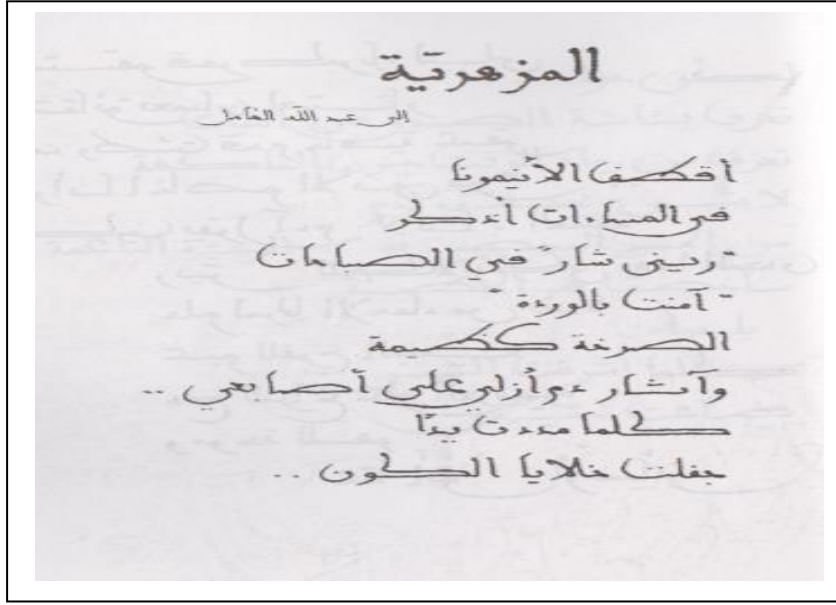 المزهريّة
إلى عبد الله
أقطف الأنيمونا
في المساءات أذكر
"رينى شار" في الصباحات
"آمنت بالوردة"
الصرخة
وآثار دم أزلي على أصابعي ..
كلما مددت يدًا
جفلت خلايا الكون ..